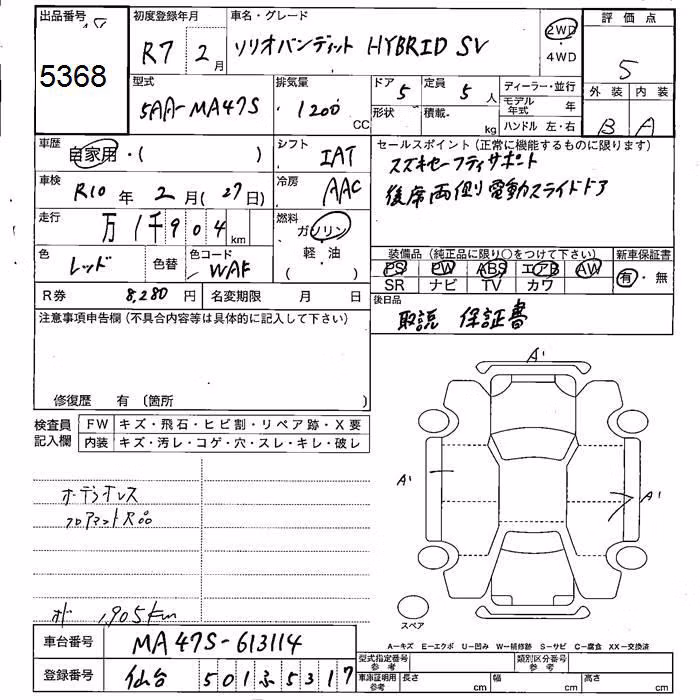 出品番号
5368
初度登録年月
R7 2月
車名・グレード
ソリオバンディット HYBRID SV
2WD
・
4WD
評価点
5
外装 内装
B A
型式
5AA-MA47S
排気量
1200 CC
ドア 5
形状
定員 5 人
積載. kg
ディーラー・並行
モデル年式 年
ハンドル 左・右
車歴
自家用・( )
シフト
IAT
セールスポイント(正常に機能するものに限ります)
スズキセーフティサポート
後席両側り電動スライドドア
車検
R10 年 2 月 (27日)
冷房
AAC
走行
万 1千904 km
燃料
ガソリン
軽・油
( )
色
レッド
色替
色コード
WAF
装備品(純正品に限り○をつけて下さい)
PS PW ABS エアB AW
SR ナビ TV カワ
新車保証書
有・無
R券 8,280 円
名変期限 月 日
後日品
取説 保証書
注意事項申告欄(不具合内容等は具体的に記入して下さい)
修復歴 有〔箇所 〕
検査員
記入欄
FW キズ・飛石・ヒビ割・リペア跡・X要
内装 キズ・汚レ・コゲ・穴・スレ・キレ・破レ
オーディオレス
フロアマットR品
オド 1,905km
A'
A'
A'
スペア
A-キズ E-エクボ U-凹み W-補修跡 S-サビ C-腐食 XX-交換済
車台番号
MA47S-613114
登録番号
仙台 501 ふ 5317
型式指定番号
参考
類別区分番号
参考
車庫証明用
参考
長さ cm
幅 cm
高さ cm